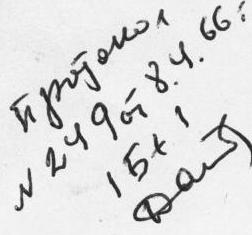 Протокол
N 249 от 8.4.66 г
15 + 1